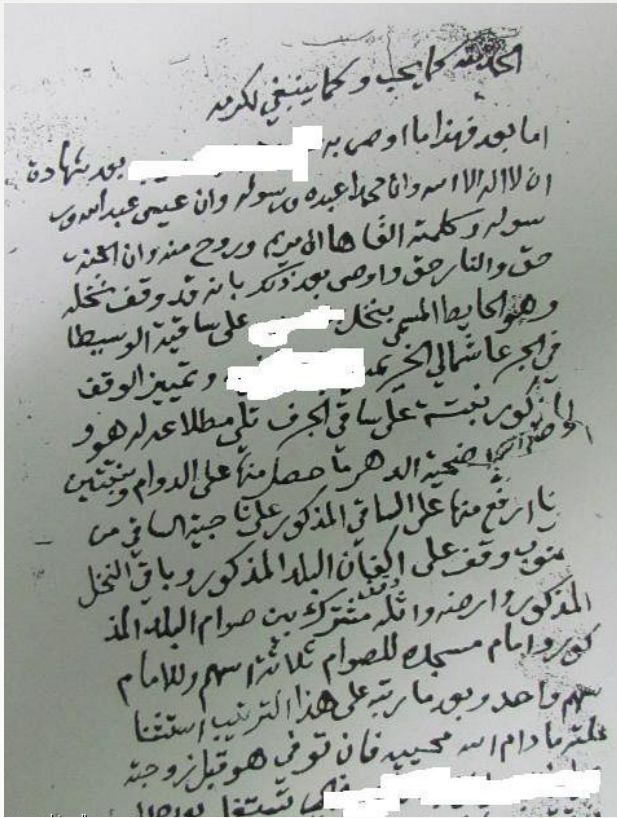 الحمد لله كما يحب وكما ينبغي لكرمه
اما بعد فهذا ما اوصى به بعد شهادة
ان لا اله الا الله وان محمدا عبده ورسوله وان عيسى عبد الله ور
سوله وكلمته القاها الى مريم وروح منه وان الجنة
حق والنار حق واوصى بعد ذلك بانه قد وقف نخله
وهو الحايط المسمى بنخل على ساقية الوسيطا
في الجرعا شمالي وتمييز الوقف
المذكور على ساقي الجرف تلي مطلاعه له هو و
اضحية الدهر ما حصل منها على الدوام
ارفع منها على الساقي المذكور على ناحية الساقي من
جنوب وقف على البلد المذكور وباقي النخل
المذكور وارضه واثله مشترك بين صوام البلد المذ
كور وامام مسجده للصوام ثلاثة اسهم وللامام
سهم واحد وبعد ما رتبه على هذا الترتيب استثنا
غلته ما دام الله محييه فان توفي هو قبل زوجته